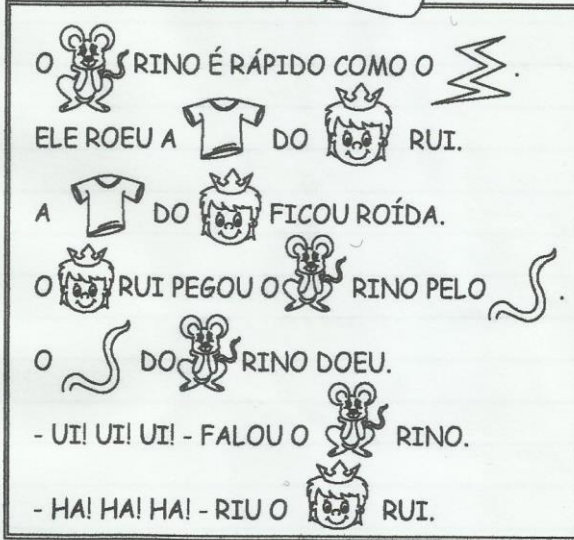 O RINO É RÁPIDO COMO O .
ELE ROEU A DO RUI.
A DO FICOU ROÍDA.
O RUI PEGOU O RINO PELO .
O DO RINO DOEU.
- UI! UI! UI! - FALOU O RINO.
- HA! HA! HA! - RIU O RUI.